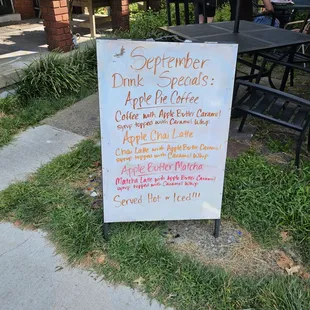 September
Drink Specials:
Apple Pie Coffee
Coffee with Apple Butter Caramel
syrup topped with Caramel Whip
Apple Chai Latte
Chai Latte with Apple Butter Caramel
syrup topped with Caramel Whip
Apple Butter Matcha
Matcha Latte with Apple Butter Caramel
syrup topped with Caramel Whip
Served Hot or Iced!!!